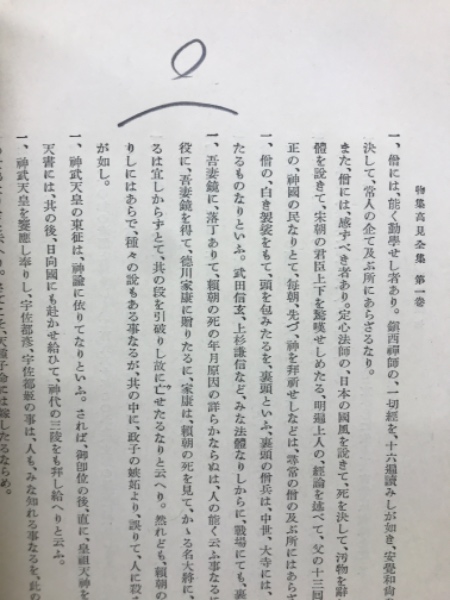 物集高見全集 第一巻
一、僧には、能く勤學せし者あり。鎭西禪師の、一切經を、十六遍讀みしが如き、安覺和尚
決して、常人の企て及ぶ所にあらざるなり。
また、僧には、感ずべき者あり。定心法師の、日本の國風を說きて、死を決して、汚物を辭
體を說きて、宋朝の君臣上下を驚嘆せしめたる、明遍上人の、經論を述べて、父の十三回
正の、神國の民なりとて、每朝、先づ、神を拜祈せしなどは、尋常の僧の及ぶ所にはあらざ
一、僧の、白き袈裟をもて、頭を包みたるを、裹頭といふ。裹頭の僧兵は、中世、大寺には、
たるものなりといふ。武田信玄、上杉謙信など、みな法體なりしからに、戰場にても、裹
一、吾妻鏡に、落丁ありて、賴朝の死の年月原因の詳らかならぬは、人の能く云ふ事なるに
役に、吾妻鏡を得て、德川家康に贈りたるに、家康は、賴朝の死を見て、かゝる名大將に、
るは宜しからずとて、其の段を引破りし故に亡せたるなりと云へり。然れども、賴朝の
りしにはあらで、種々の說もある事なるが、其の中に、政子の嫉妬より、誤りて、人に殺
が如し。
一、神武天皇の東征は、神諭に依りてなりといふ。されば、御卽位の後、直に、皇祖天神を
天書には、其の後、日向國にも赴かせ給ひて、神代の三陵をも拜し給へりと云ふ。
一、神武天皇を饗應し奉りし、宇佐都彥、宇佐都姬の事は、人も、みな知れる事なるを、此の